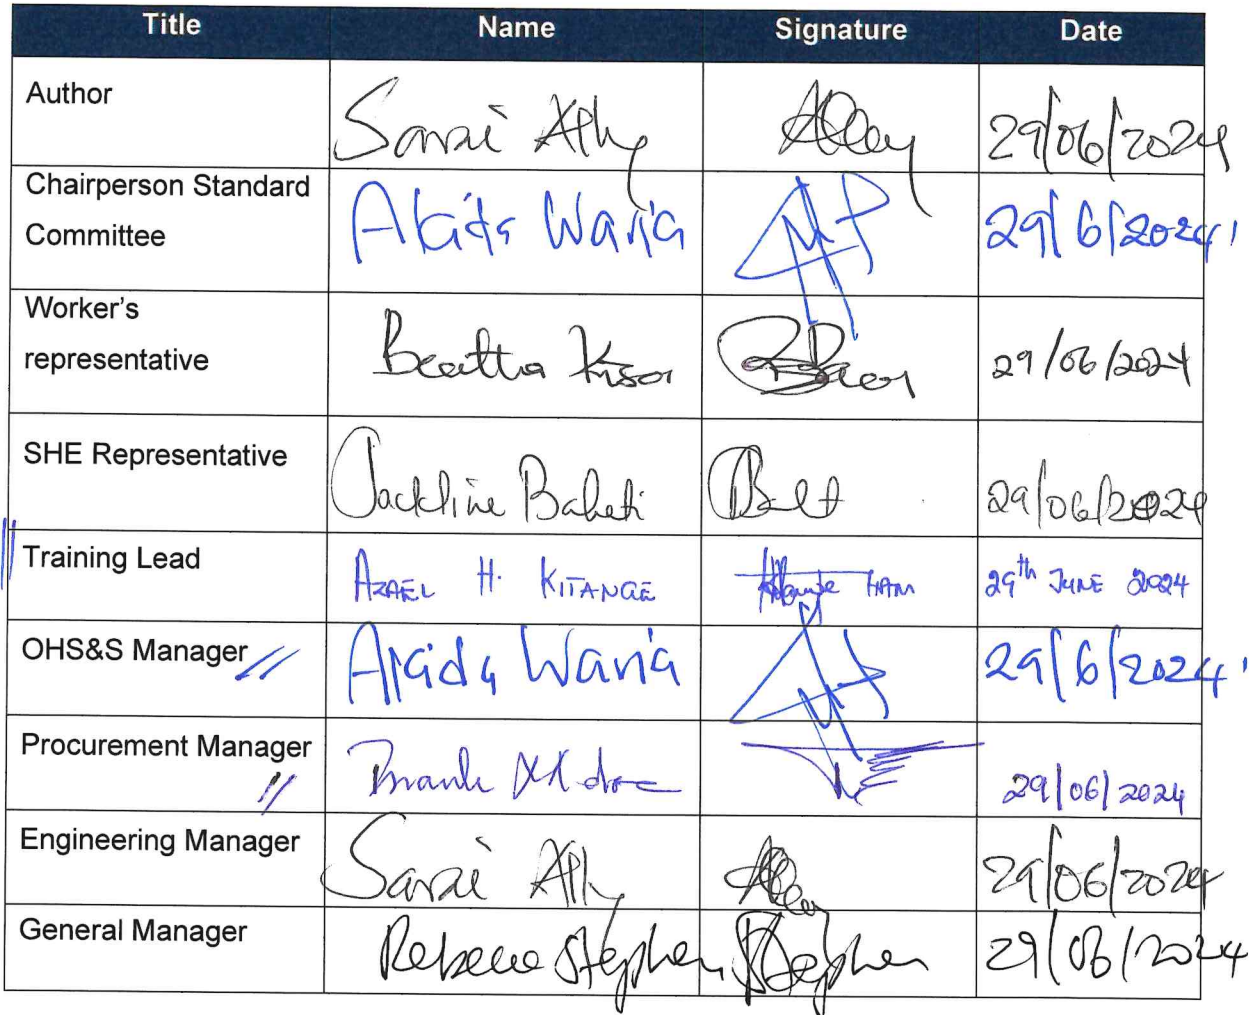 Title Name Signature Date
Author Sarai Ally 29/06/2024
Chairperson Standard
Committee Akida Waria 29/6/2024
Worker's
representative Beatta 29/06/2024
SHE Representative Jackline Baheti 29/06/2024
Training Lead AZAEL H. KITANGE 29th JUNE 2024
OHS&S Manager Akida Waria 29/6/2024
Procurement Manager 29/06/2024
Engineering Manager Sarai Ally 29/06/2024
General Manager Rebecca Stephen Stephen 29/06/2024